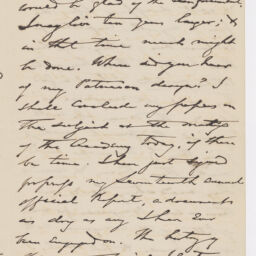 would be glad of the
ten years longer; &
in that time much might
be done. Where did you hear
of my Paterson design? I
shall conclude my papers on
the subject at the meeting
of the Academy today, if there
be time. I have just signed
perhaps my seventeenth annual
official Report, a document
as dry as any I have ever
been engaged on. The history